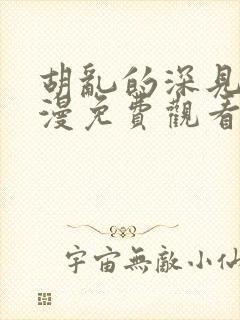 胡亂的深見
漫免費觀看
宇宙無敵小仙